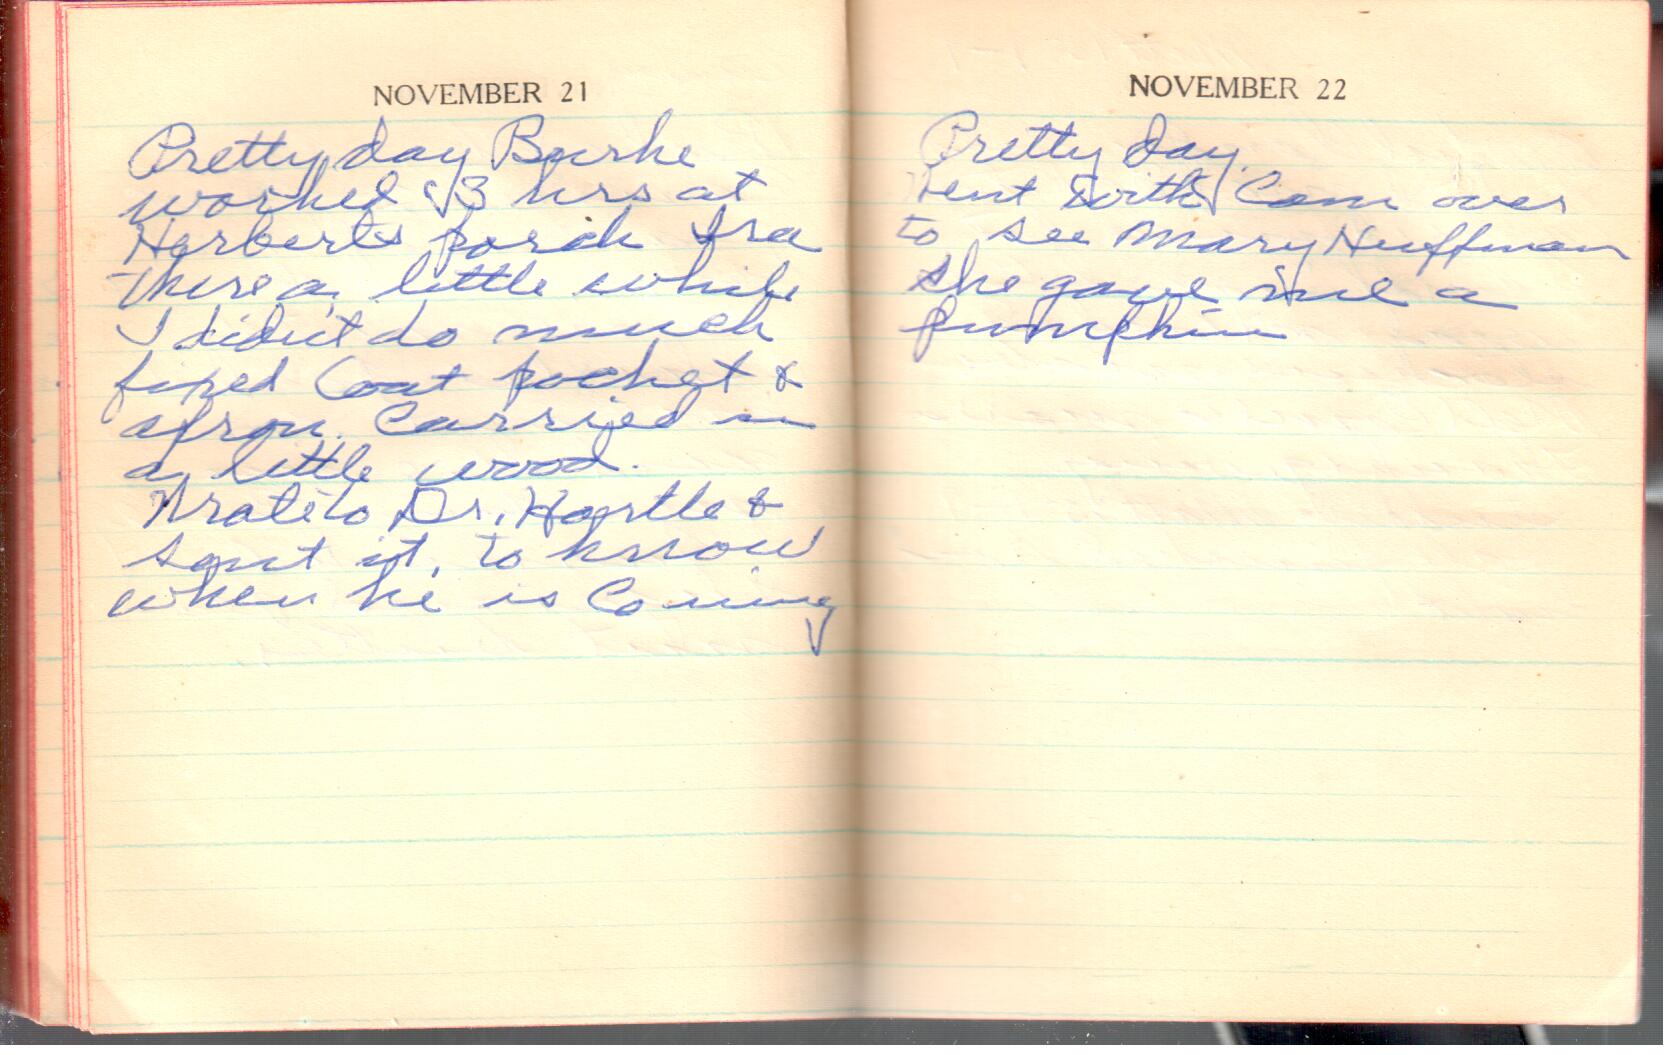 NOVEMBER 21
Pretty day Burke
worked 3 hrs at
Herberts porch Ira
there a little while
I didn't do much
fixed Coat pocket &
apron. Carried in
a little wood.
Wrote to Dr. Hartle &
sent it, to know
when he is Coming
NOVEMBER 22
Pretty day.
Went with Cam over
to see Mary Huffman
she gave me a
pumpkin